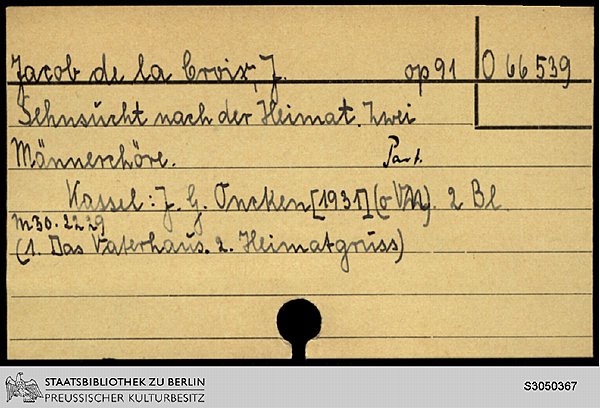 Jacob de la Croix, J. op 91 O 66 539
Sehnsucht nach der Heimat. Zwei
Männerchöre. Part.
Kassel: J. G. Oncken [1931] (o VN). 2 Bl
M 30. 2229
(1. Das Vaterhaus. 2. Heimatgruss)
STAATSBIBLIOTHEK ZU BERLIN
PREUSSISCHER KULTURBESITZ
S3050367